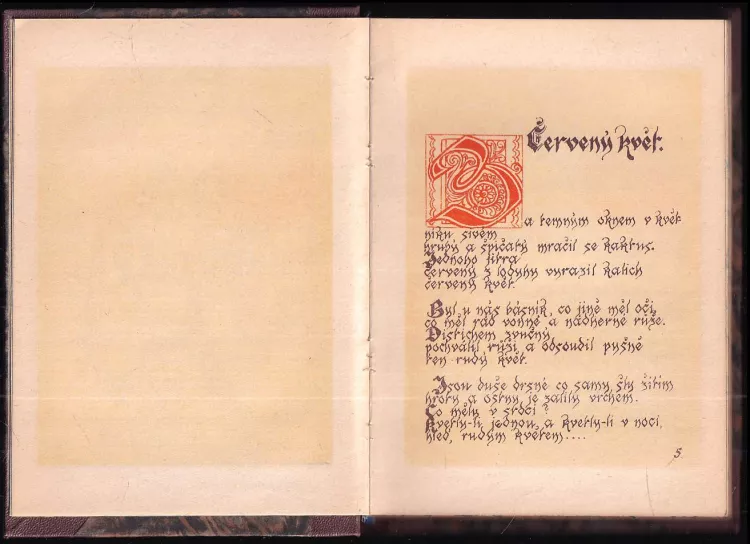 Červený květ.
Za temným oknem v květ
níku sivém
hrubý a špičatý mračil se kaktus.
Jednoho jitra
červený z lodyhy vyrazil kalich
červený květ.
Byl u nás básník, co jiné měl oči,
co měl rád vonné a nádherné růže.
Distichem zvučným
pochválil růži a odsoudil pyšně
ten rudý květ.
Jsou duše drsné co samy šly žitím
hroty a ostny je zalily vrchem.
Co měly v srdci?
Kvetly-li jednou, a kvetly-li v noci,
hled, rudým květem....
5